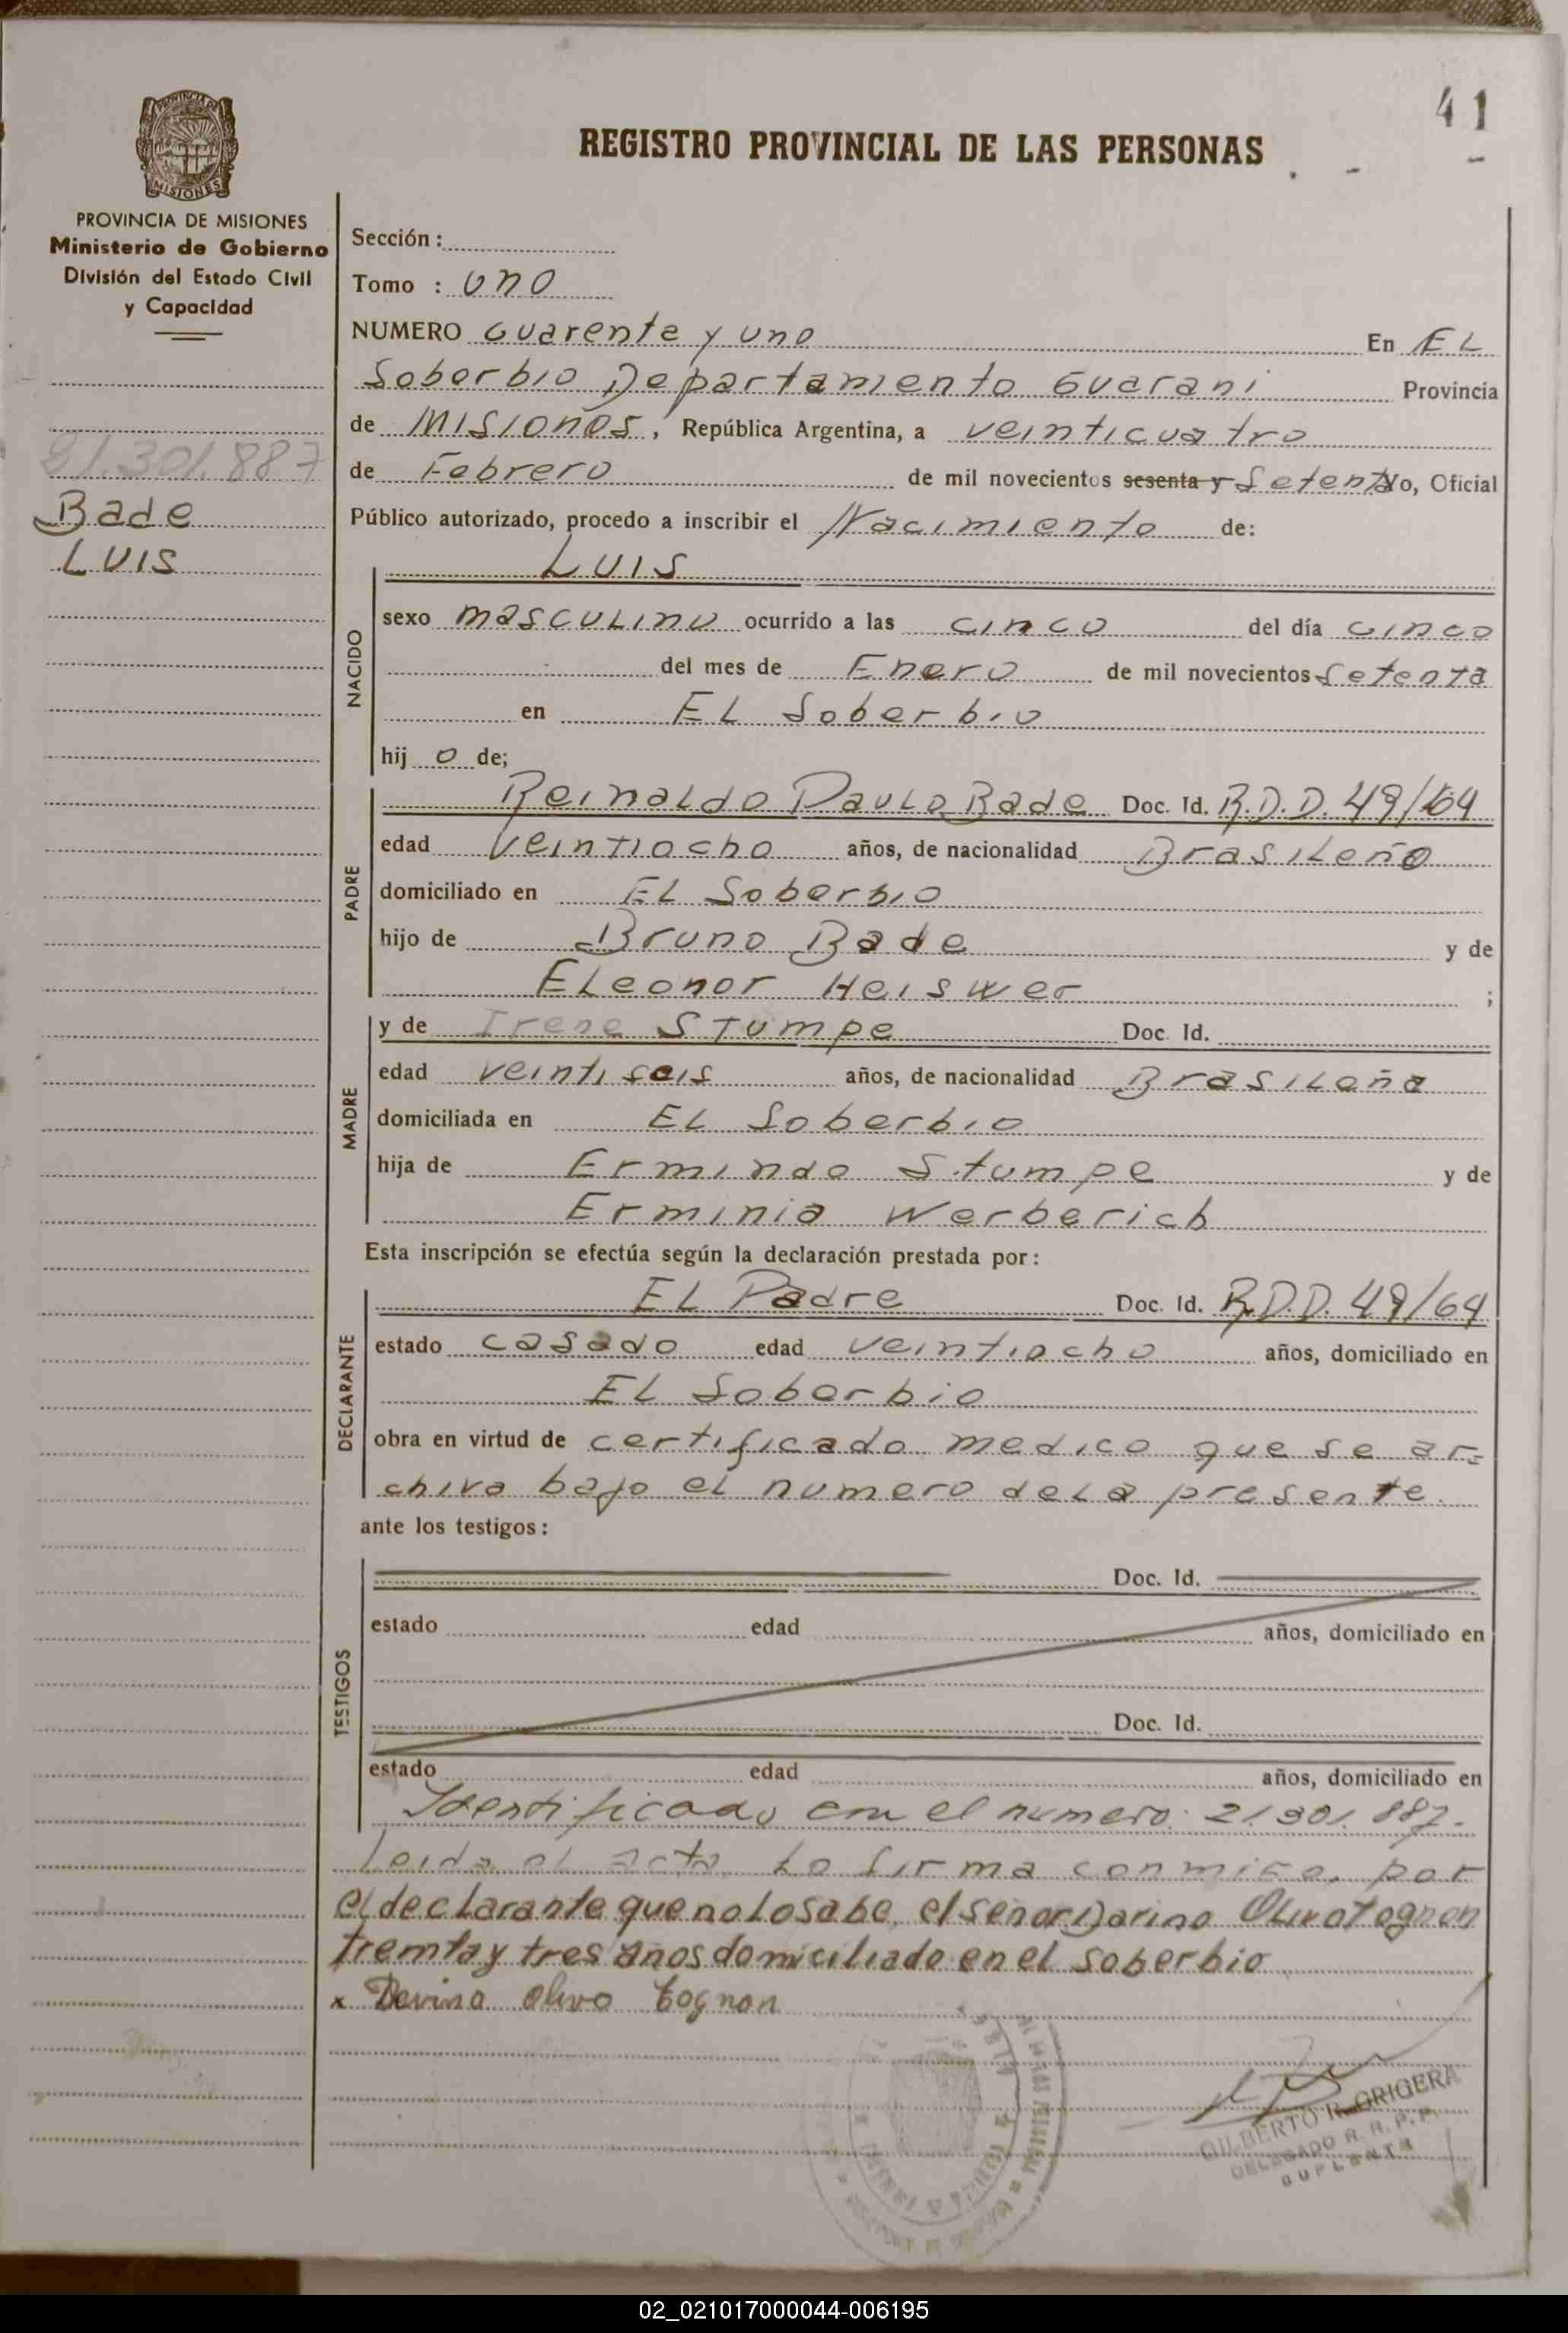 41
REGISTRO PROVINCIAL DE LAS PERSONAS
PROVINCIA DE MISIONES
Ministerio de Gobierno
División del Estado Civil
y Capacidad
21.301.887
Bade
LUIS
Sección :
Tomo : uno
NUMERO Cuarenta y uno En EL
Soberbio Departamento Guarani Provincia
de Misiones, República Argentina, a veinticuatro
de Febrero de mil novecientos sesenta y Setenta Yo, Oficial
Público autorizado, procedo a inscribir el Nacimiento de:
LUIS
NACIDO
sexo masculino ocurrido a las cinco del día cinco
del mes de Enero de mil novecientos Setenta
en EL Soberbio
hij o de;
PADRE
Reinaldo Paulo Bade Doc. Id. R.D.D. 49/64
edad Veintiocho años, de nacionalidad Brasileño
domiciliado en EL Soberbio
hijo de Bruno Bade y de
ELeonor Heiswer ;
MADRE
y de Irene Stumpe Doc. Id.
edad veintiseis años, de nacionalidad Brasileña
domiciliada en EL Soberbio
hija de Ermindo Stumpe y de
Erminia Werberich
Esta inscripción se efectúa según la declaración prestada por :
DECLARANTE
EL Padre Doc. Id. R.D.D. 49/64
estado casado edad veintiocho años, domiciliado en
EL Soberbio
obra en virtud de certificado medico que se ar=
chiva bajo el numero de la presente.
ante los testigos :
TESTIGOS
Doc. Id.
estado edad años, domiciliado en
Doc. Id.
estado edad años, domiciliado en
Identificado con el numero: 21.301.887.-
Leida el acta, La firma conmigo, por
el declarante que no lo sabe, el señor Darino Olivo Tognon
treinta y tres años domiciliado en el soberbio
x Devino Olivo Tognon
GILBERTO R. GRIGERA
DELEGADO R. P. P.
SUPLENTE
02_021017000044-006195